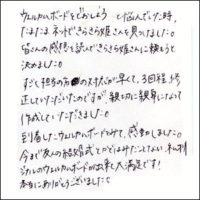 ウェルカムボードをどうしよう と悩んでいた時、
たまたまネットできらきら姫さんを見つけました。
皆さんの感想を読んできらきら姫さんに頼もうと
決めました。
すごく担当の方の対応が早くて、3回程校
正していただいたのですが、親切に親身になって
作成していただきました。
到着したウェルカムボードをみて、感動しました。
今まで友人の結婚式とかではみたことない、オリ
ジナルのウェルカムボードが出来て大満足です!
本当にありがとうございました。